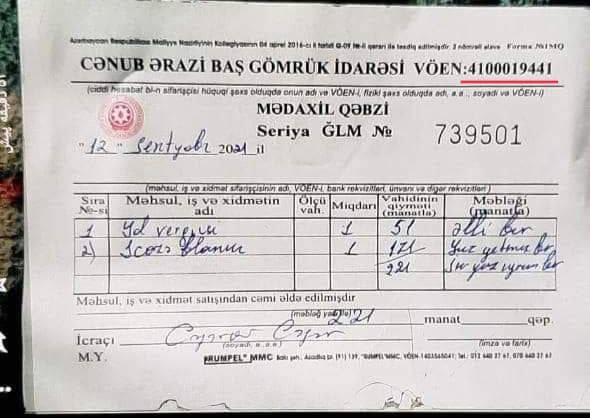 Azərbaycan Respublikası Maliyyə Nazirliyinin Kollegiyasının 04 aprel 2016-cı il tarixli Q-09 №-li qərarı ilə təsdiq edilmişdir. 2 nömrəli əlavə Forma №1MQ
CƏNUB ƏRAZİ BAŞ GÖMRÜK İDARƏSİ VÖEN:4100019441
(ciddi hesabat bl-n sifarişçisi hüquqi şəxs olduqda onun adı və VÖEN-i, fiziki şəxs olduqda adı, a.a., soyadı və VÖEN-i)
MƏDAXİL QƏBZİ
Seriya ĞLM № 739501
"12" Sentyabr 2021 il
(məhsul, iş və xidmət sifarişçisinin adı, VÖEN-i, bank rekvizitləri, ünvanı və digər rekvizitləri)
Sıra №-si Məhsul, iş və xidmətin adı Ölçü vah. Miqdarı Vahidinin qiyməti (manatla) Məbləği (manatla)
1 Yol vergisi 1 51 əlli bir
2) 1 171 Yüz yetmiş bir
221 iyirmi bir
Məhsul, iş və xidmət satışından cəmi əldə edilmişdir
221 manat qəp.
(məbləğ yazı ilə)
İcraçı
(soyadı, a.a.a.) (imza və tarix)
M.Y. "RUMPEL" MMC Bakı şəh.,